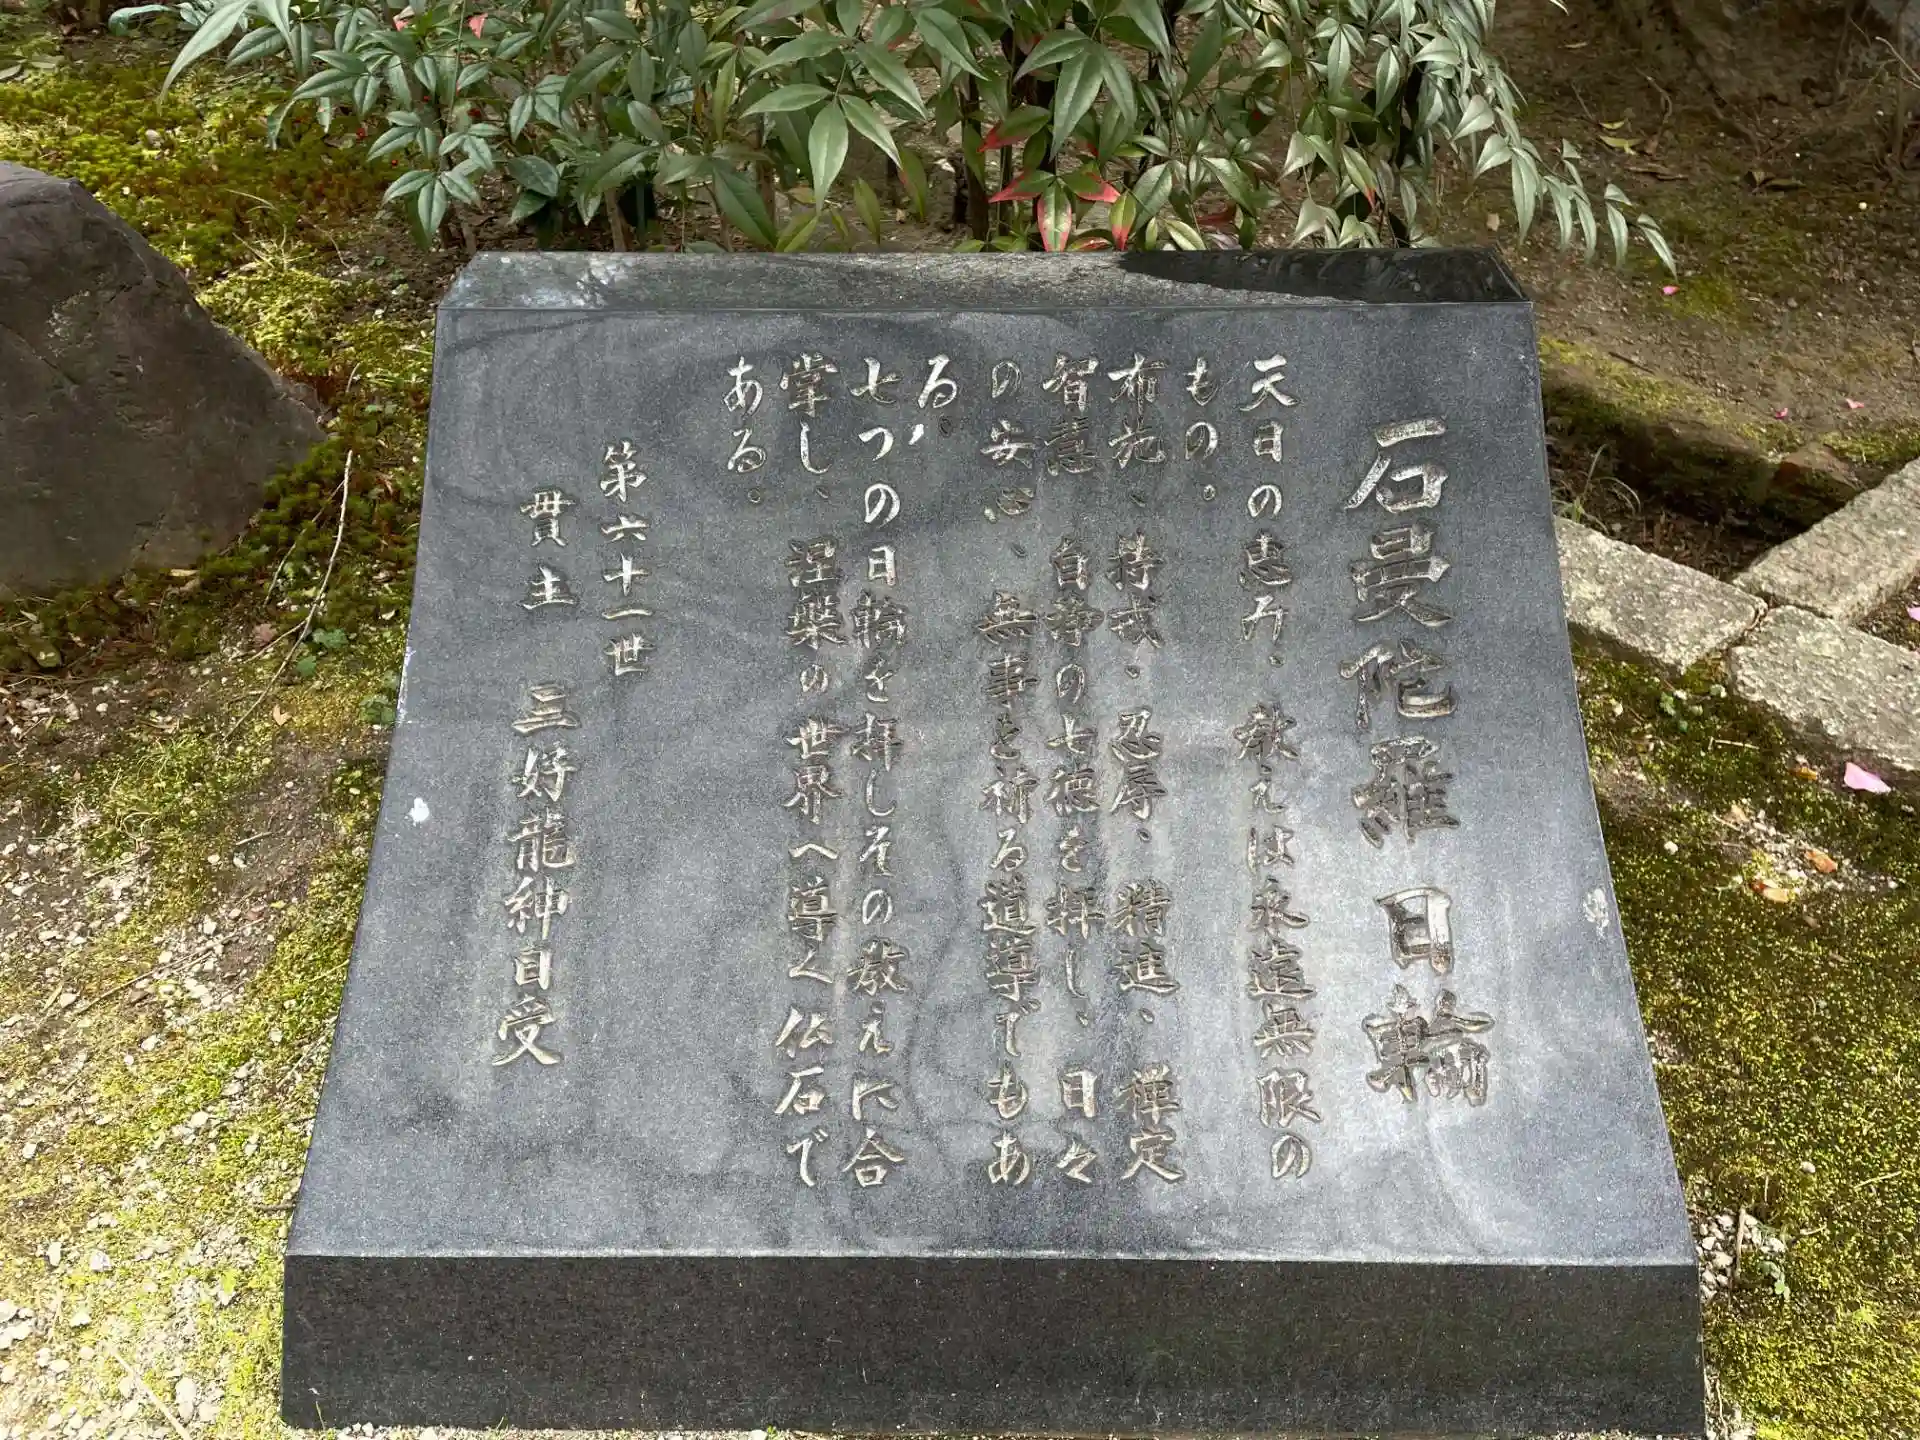 石曼陀羅 日輪
天日の恵み、救えは永遠無限の
もの。
布施、持戒、忍辱、精進、禅定
智慧、自浄の七徳を拝し、日々
の安心、無事を祈る道導でもあ
る。
七つの日輪を拝しその教えに合
掌し、涅槃の世界へ導く仏石で
ある。
第六十一世
貫主 三好龍紳自受